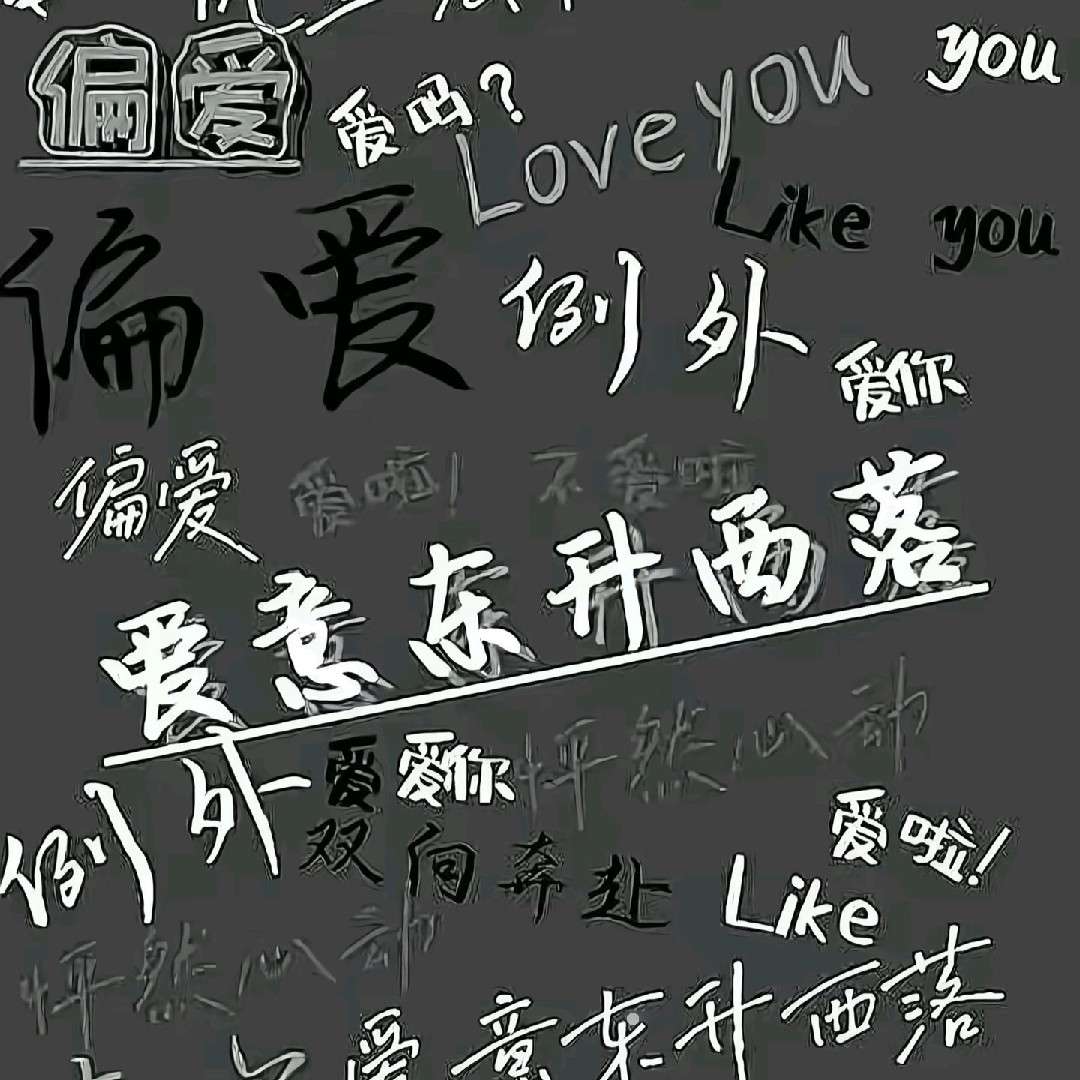 偏爱
爱吗?
Love you
you
Like you
偏爱
例外
爱你
偏爱
爱啦!
不爱啦
爱意东升西落
怦然心动
例外
爱
爱你
双向奔赴
爱啦!
Like
怦然心动
爱意东升西落